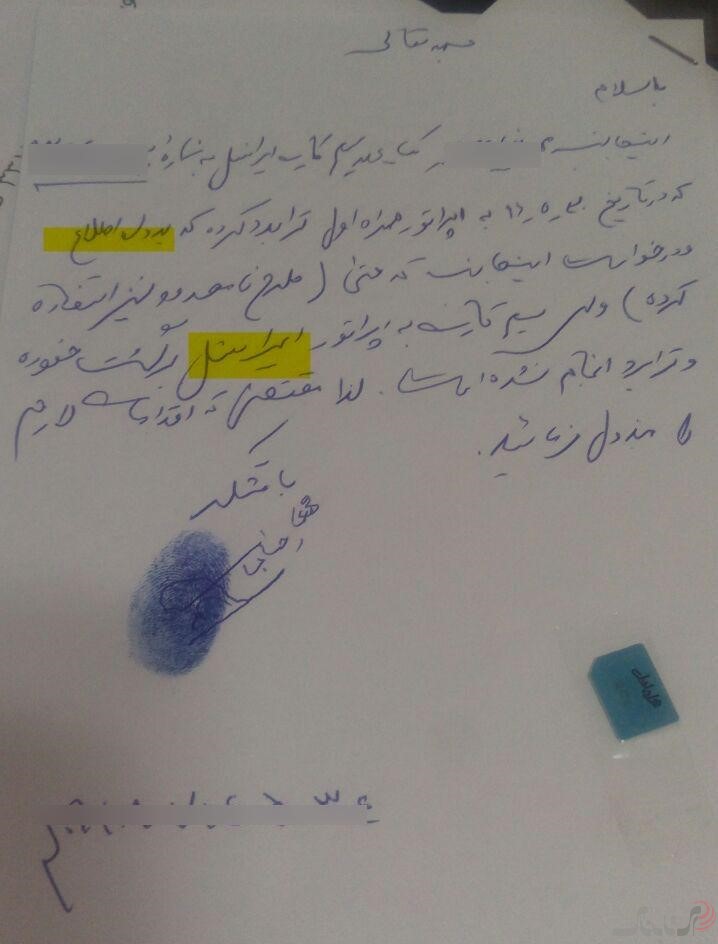 بسمه تعالی
باسلام
اینجانب در کد سیم کارت ایرانسل به شماره
که در تاریخ به اپراتور همراه اول ترابرد کرده که بدون اطلاع
و درخواست اینجانب که حتی (طرح نامحدود نیز استفاده
کرده) ولی سیم کارت به اپراتور ایرانسل برگشت خورده
و ترابرد انجام نشده است. لذا مقتضی که اقدامات لازم
را مبذول فرمائید.
با تشکر
همراه اول